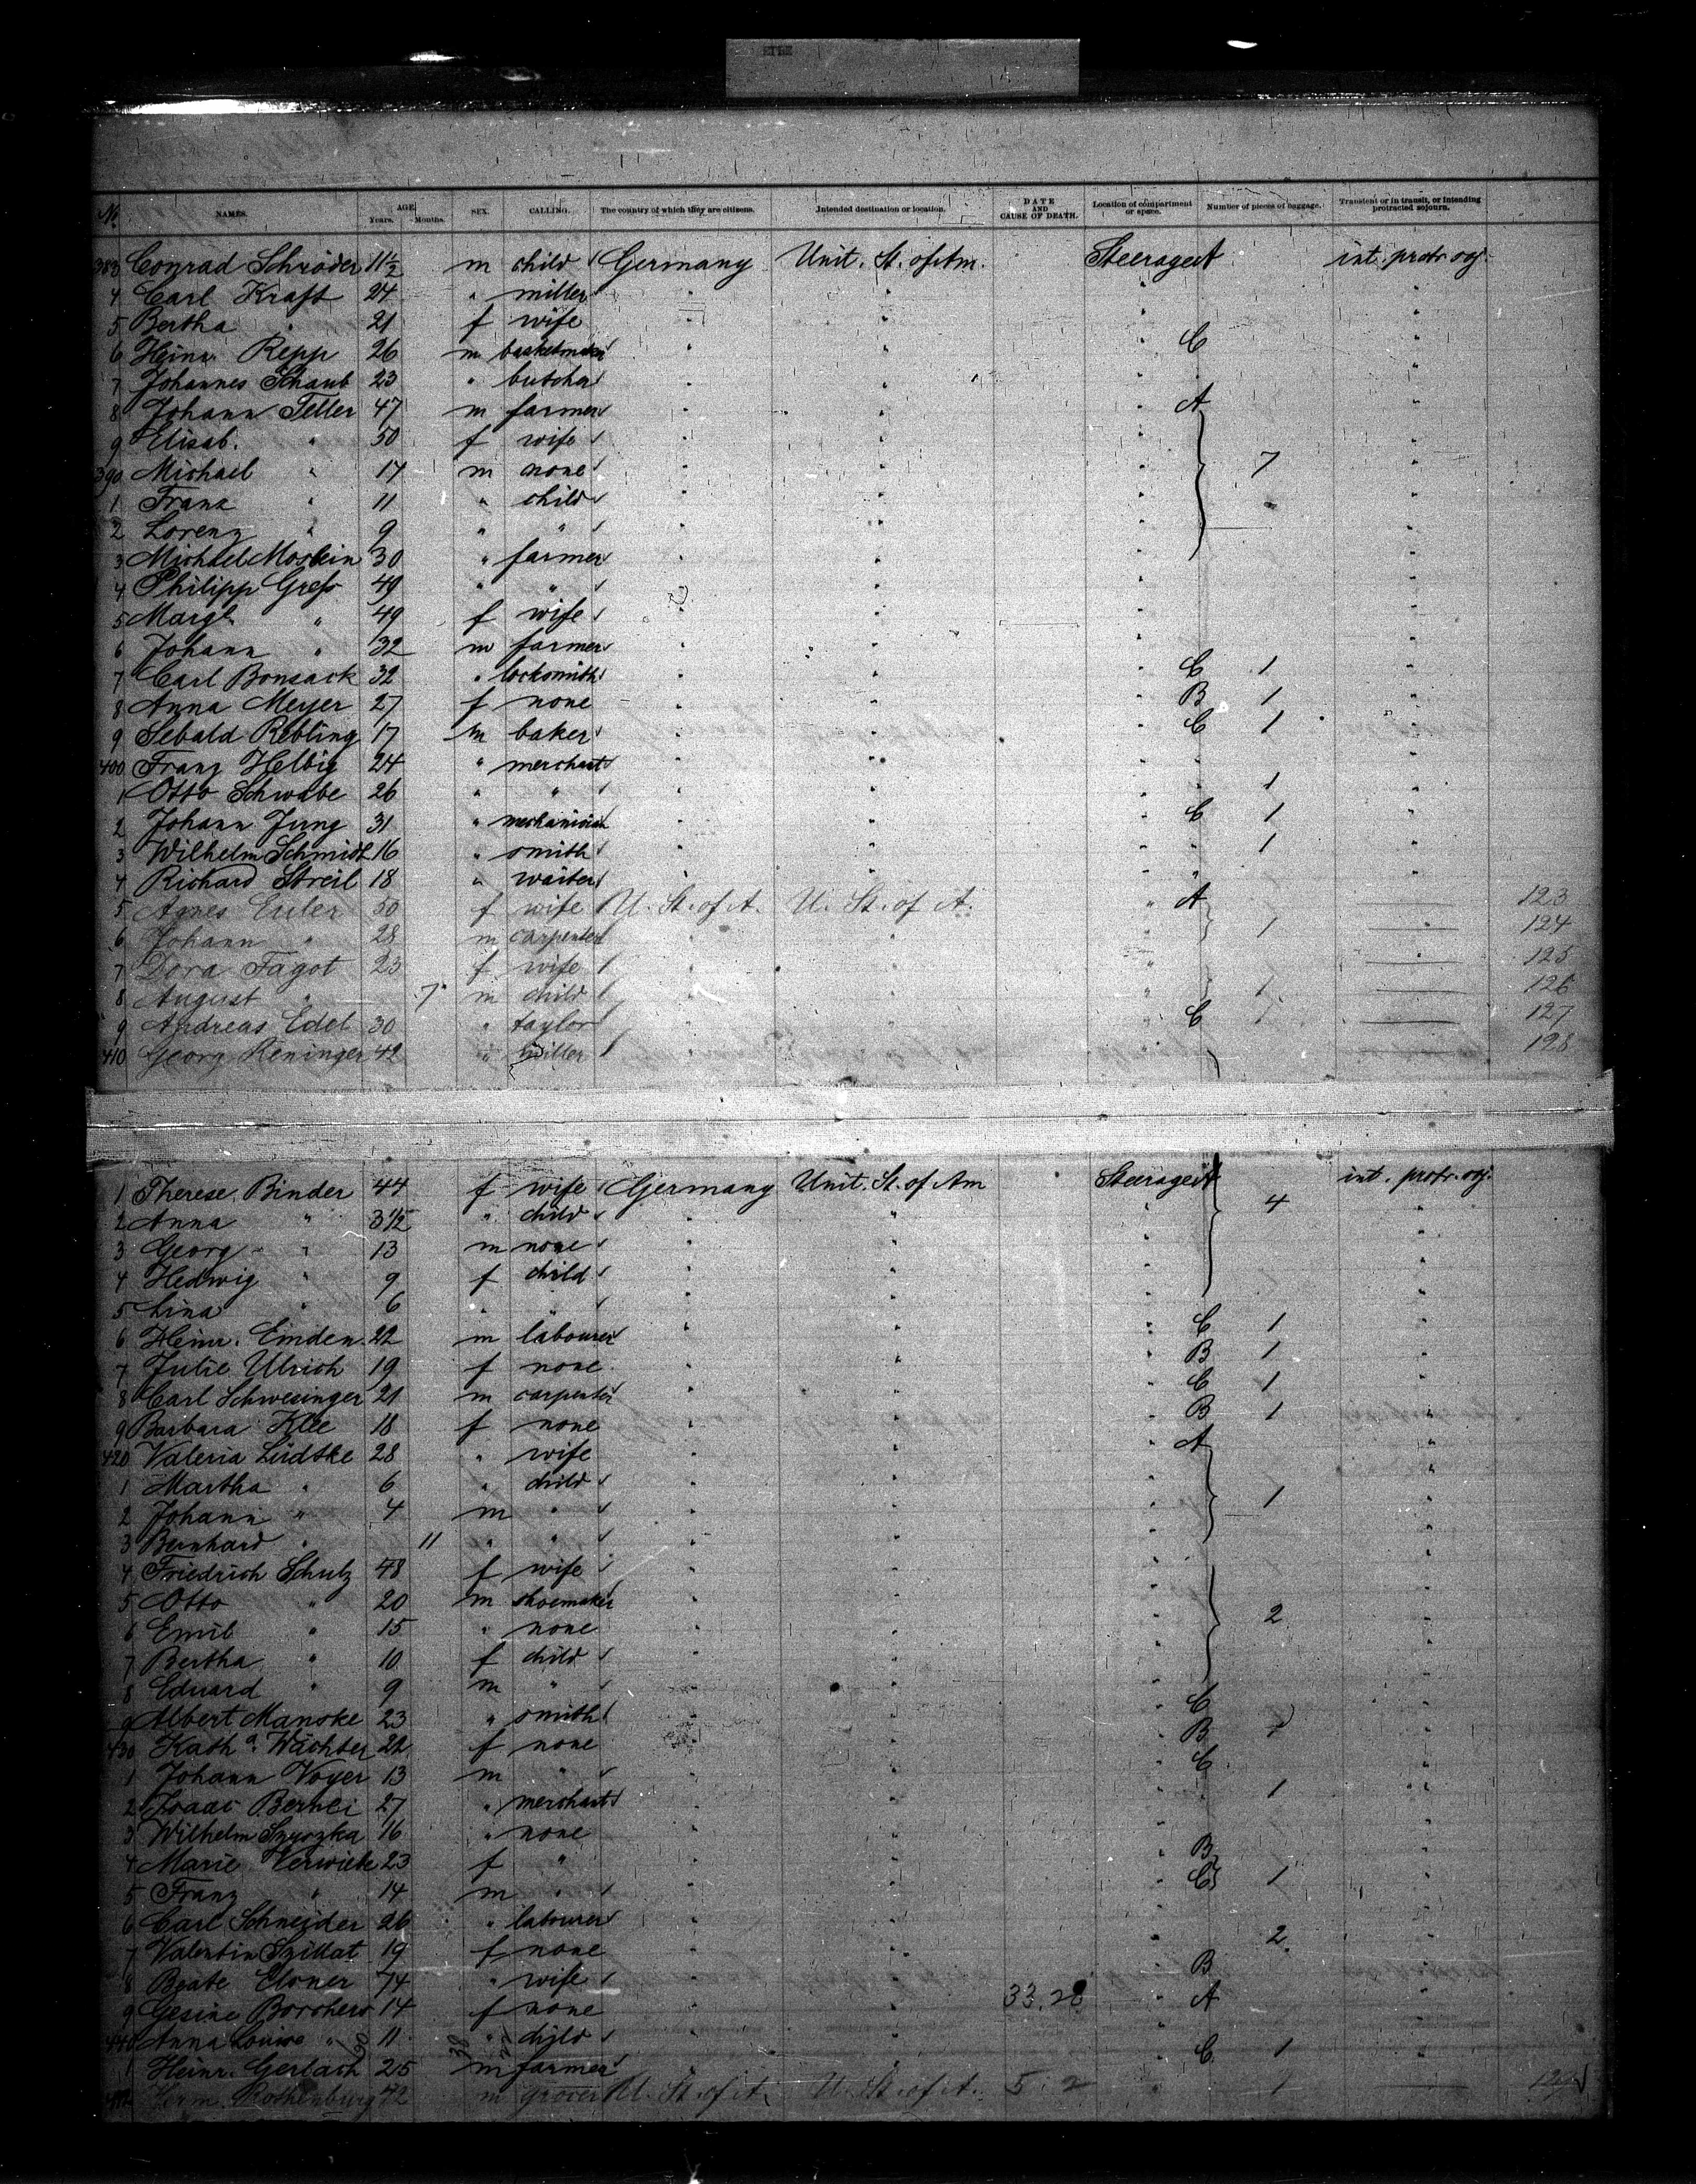 No. NAMES. AGE. Years. Months. SEX. CALLING. The country of which they are citizens. Intended destination or location. DATE AND CAUSE OF DEATH. Location of compartment or space. Number of pieces of baggage. Transient or in transit, or intending protracted sojourn.
383 Conrad Schröder 11½ m child Germany Unit. St. of Am. Steerage A int. protr. soj.
4 Carl Kraft 24 " miller " " " "
5 Bertha " 21 f wife " " " "
6 Heinr. Repp 26 m basketmaker " " " C "
7 Johannes Schaub 23 " butcher " " " "
8 Johann Teller 47 m farmer " " " A "
9 Elisab. " 50 f wife " " " "
390 Michael " 17 m none " " " 7 "
1 Franz " 11 " child " " " "
2 Lorenz " 9 " " " " " "
3 Michael 30 " farmer " " " "
4 Philipp Gress 49 " " " " " "
5 Margt. " 49 f wife " " " "
6 Johann " 32 m farmer " " " "
7 Carl Bonsack 32 " locksmith " " " C 1 "
8 Anna Meyer 27 f none " " " B 1 "
9 Sebald Rebling 17 m baker " " " C 1 "
400 Franz Helbig 24 " merchant " " " " "
1 Otto Schwabe 26 " " " " " " 1 "
2 Johann Jung 31 " mechanician " " " C 1 "
3 Wilhelm Schmidt 16 " smith " " " " 1 "
4 Richard Streil 18 " waiter " " " " "
5 Agnes Euler 50 f wife U. St. of A. U. St. of A. " A 123
6 Johann " 28 m carpenter " " " 1 124
7 Dora Fagot 23 f wife " " " 125
8 August " 7 m child " " " 1 126
9 Andreas Edel 30 " taylor " " " C 1 127
410 Georg Reninger 42 " miller " " " 128
1 Therese Binder 44 f wife Germany Unit. St. of Am Steerage A 4 int. protr. soj.
2 Anna " 3½ " child " " " "
3 Georg " 13 m none " " " "
4 Hedwig " 9 f child " " " "
5 Lina " 6 " " " " " "
6 Heinr. Emden 22 m labourer " " " C 1 "
7 Julie Ulrich 19 f none " " " B 1 "
8 Carl Schwesinger 21 m carpenter " " " C 1 "
9 Barbara Klee 18 f none " " " B 1 "
420 Valeria Lüdtke 28 " wife " " " A "
1 Martha " 6 " child " " " 1 "
2 Johann " 4 m " " " " "
3 Bernhard " 11 " " " " " "
4 Friedrich Schulz 48 f wife " " " "
5 Otto " 20 m shoemaker " " " 2 "
6 Emil " 15 " none " " " "
7 Bertha " 10 f child " " " "
8 Eduard " 9 m " " " " "
9 Albert Manske 23 " smith " " " C "
430 Katha. Wächter 22 f none " " " B 1 "
1 Johann Voyer 13 m " " " " C "
2 Isaac 27 " merchant " " " 1 "
3 Wilhelm 16 " none " " " "
4 Marie 23 f " " " " B "
5 Franz " 14 m " " " " C 1 "
6 Carl Schneider 26 " labourer " " " "
7 Valentin Szillat 19 f none " " " 2 "
8 Beate Elsner 74 " wife " " " B "
9 Gesine Borchers 14 f none " " 33.28 " A "
440 Anna Louise " 11 " child " " " "
1 Heinr. Gerlach 25 m farmer " " " C 1 "
442 Herm. Rothenburg 42 m grocer U. St. of A. U. St. of A. 5. 2 " 1 129